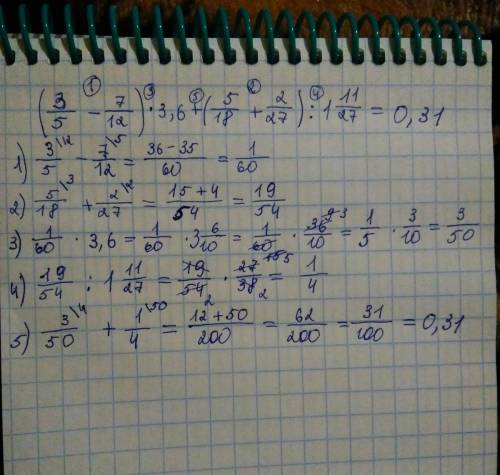 ① ③ ⑤ ② ④
(3/5 − 7/12) · 3,6 + (5/18 + 2/27) : 1 11/27 = 0,31
1) 3\12/5 − 7\5/12 = 36−35/60 = 1/60
2) 5\3/18 + 2\2/27 = 15+4/54 = 19/54
3) 1/60 · 3,6 = 1/60 · 3 6/10 = 1/60 · 36/10 = 1/5 · 3/10 = 3/50
4) 19/54 : 1 11/27 = 19/54 2 · 27/38 2 = 1/4
5) 3\4/50 + 1\50/4 = 12+50/200 = 62/200 = 31/100 = 0,31